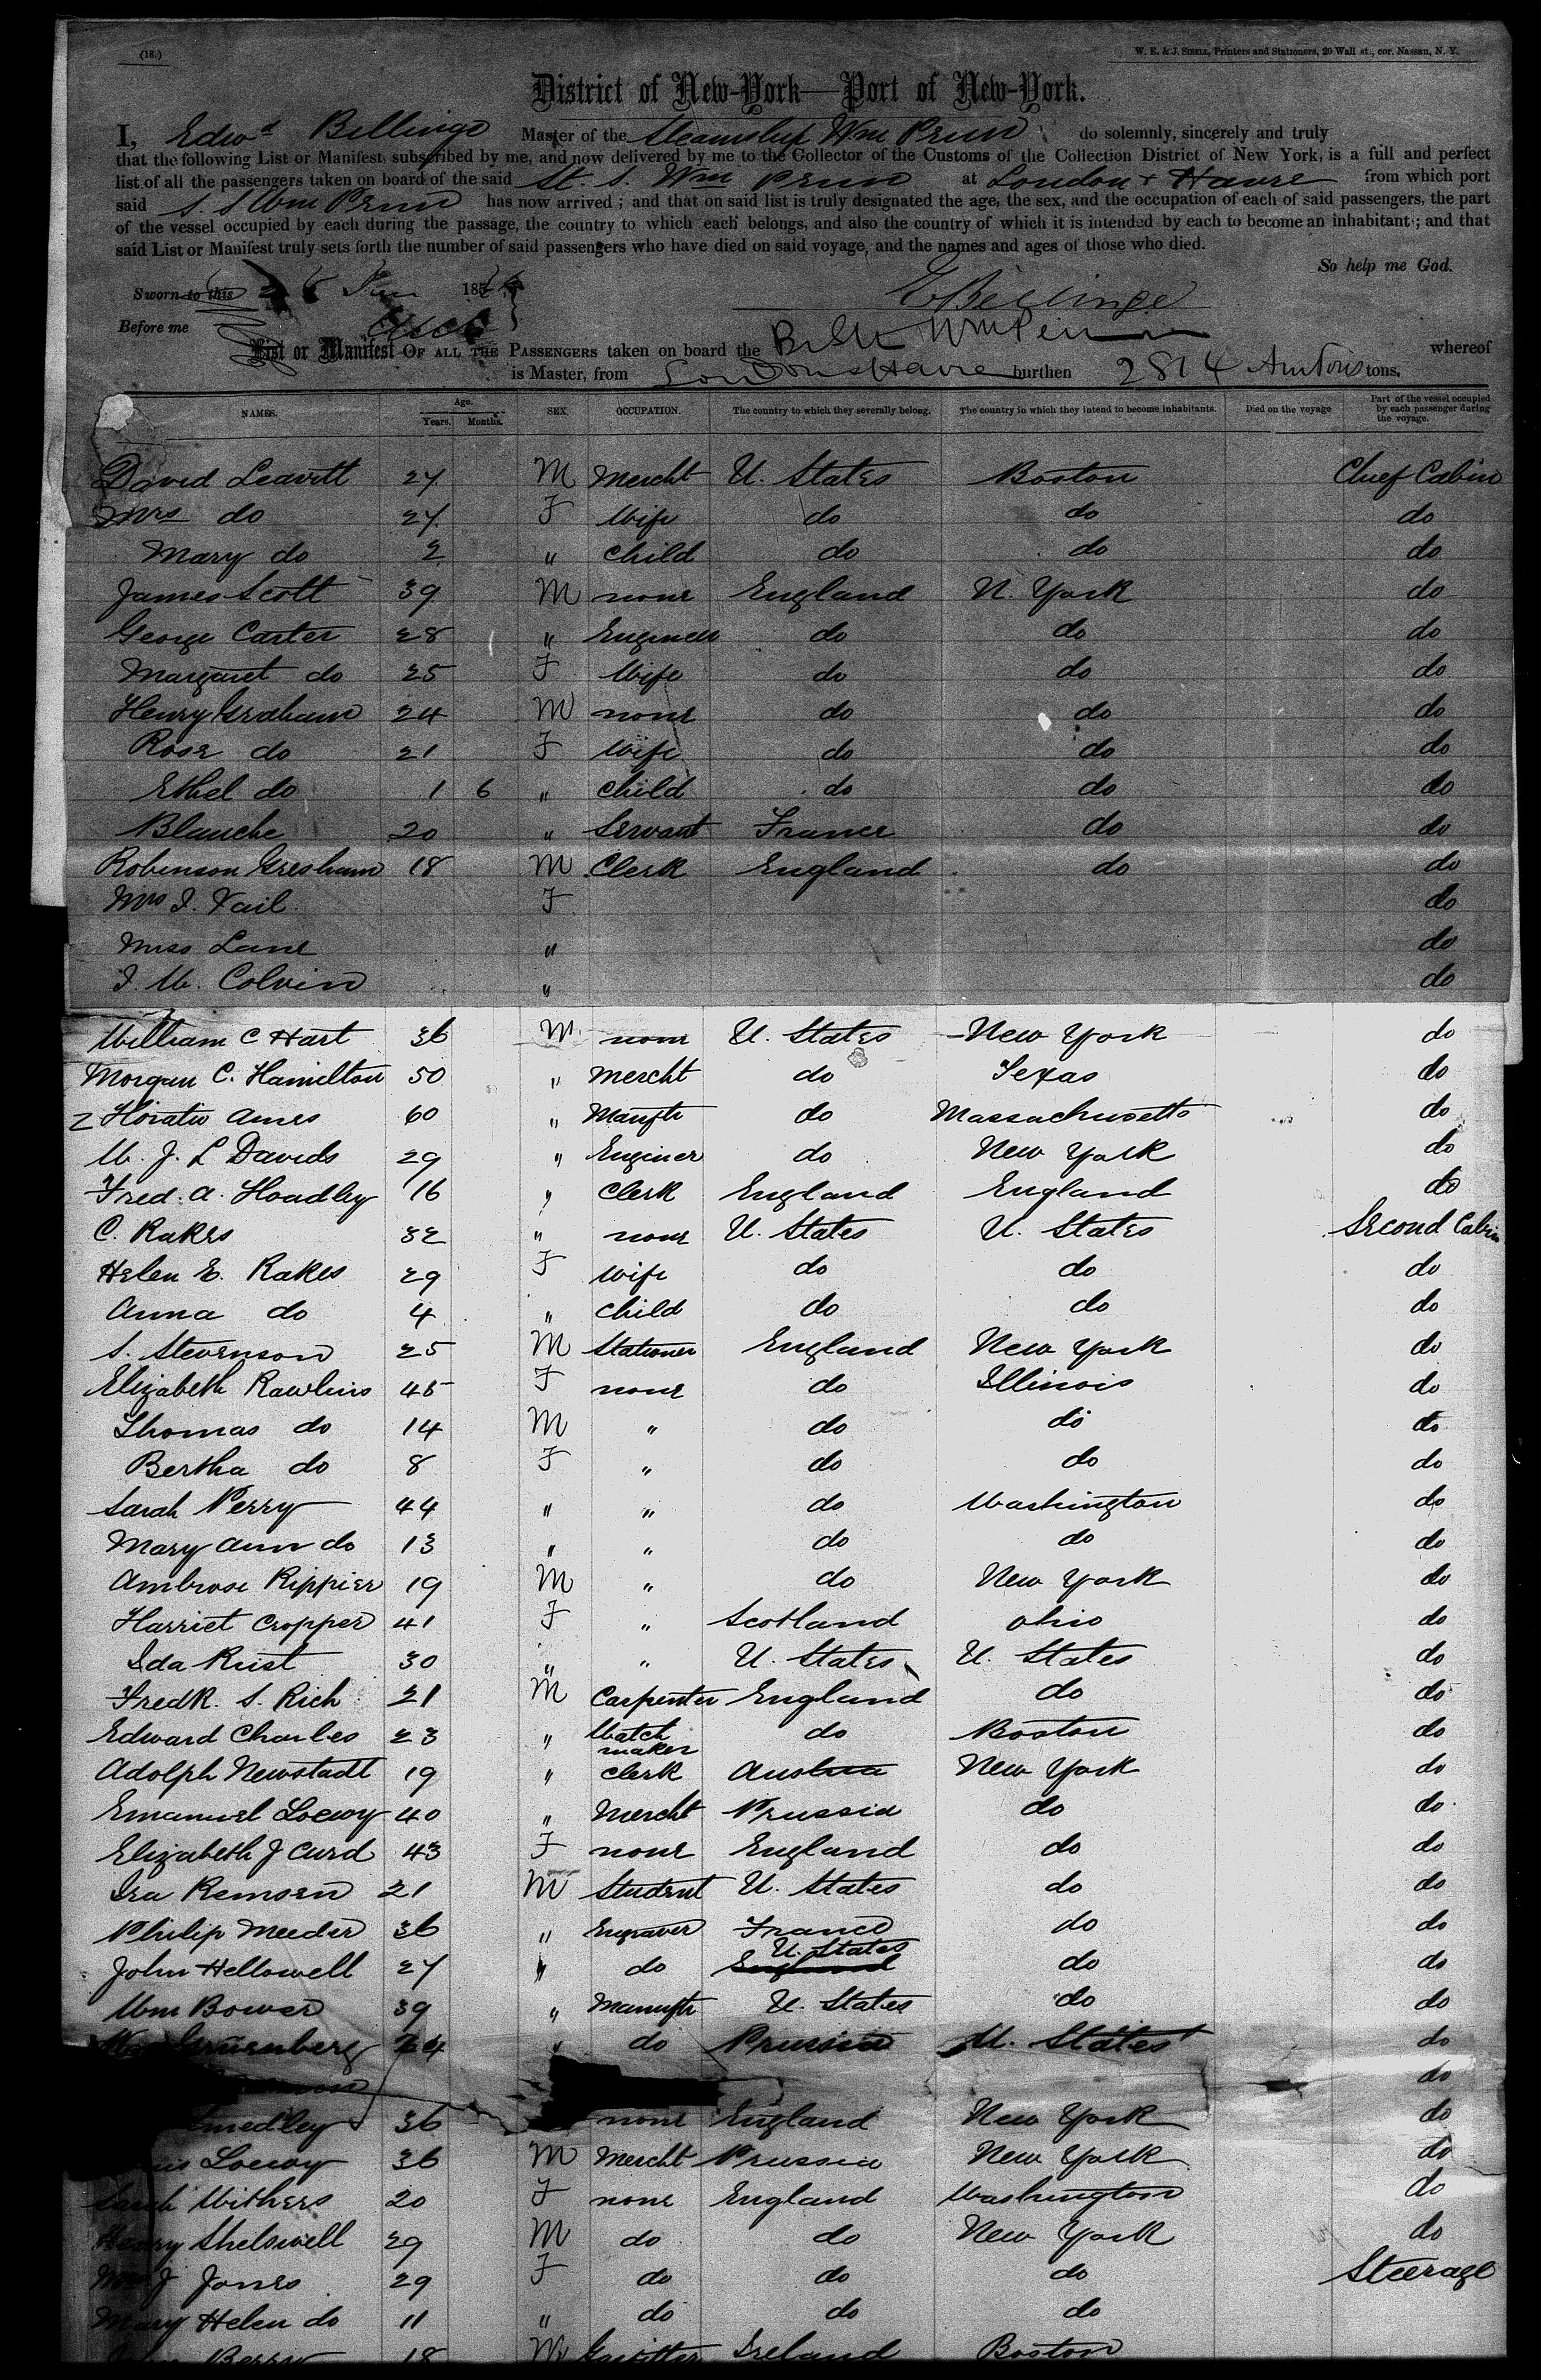 (18.)
W. E. & J. SIBELL, Printers and Stationers, 20 Wall st., cor. Nassau, N. Y.
District of New-York—Port of New-York.
I, Edwd Billinge Master of the Steamship Wm Penn do solemnly, sincerely and truly
that the following List or Manifest, subscribed by me, and now delivered by me to the Collector of the Customs of the Collection District of New York, is a full and perfect
list of all the passengers taken on board of the said St. S. Wm Penn at London & Havre from which port
said S. S Wm Penn has now arrived; and that on said list is truly designated the age, the sex, and the occupation of each of said passengers, the part
of the vessel occupied by each during the passage, the country to which each belongs, and also the country of which it is intended by each to become an inhabitant; and that
said List or Manifest truly sets forth the number of said passengers who have died on said voyage, and the names and ages of those who died.
So help me God.
Sworn to this 185
E Billinge
Before me
List or Manifest OF ALL THE PASSENGERS taken on board the Wm Penn whereof
is Master, from London & Havre burthen 2814 tons.
NAMES. Age. Years. Months. SEX. OCCUPATION. The country to which they severally belong. The country in which they intend to become inhabitants. Died on the voyage Part of the vessel occupied by each passenger during the voyage.
David Leavitt 27 M Mercht U. States Boston Chief Cabin
Mrs do 27 F Wife do do do
Mary do 2 " child do do do
James Scott 39 M none England N. York do
George Carter 28 " Engineer do do do
Margaret do 25 F Wife do do do
Henry Graham 24 M none do do do
Rose do 21 F Wife do do do
Ethel do 1 6 " child do do do
Blanche 20 " Servant France do do
Robinson Gresham 18 M Clerk England do do
Mrs I. Vail F do
Miss Lane " do
I. W. Colvin " do
William C Hart 36 M none U. States New York do
Morgan C. Hamilton 50 " Mercht do Texas do
Horatio Ames 60 " Manftr do Massachusetts do
W. J. L Davids 29 " Enginer do New York do
Fred. A. Hoadley 16 " clerk England England do
C. Rakes 32 " none U. States U. States Second Cabin
Helen E. Rakes 29 F Wife do do do
Anna do 4 " child do do do
S. Stevenson 25 M Stationer England New York do
Elizabeth Rawlins 45 F none do Illinois do
Thomas do 14 M " do do do
Bertha do 8 F " do do do
Sarah Perry 44 " " do Washington do
Mary Ann do 13 " " do do do
Ambrose Rippier 19 M " do New York do
Harriet Cropper 41 F " Scotland Ohio do
Ida Rust 30 " " U. States U. States do
Fredk. S. Rich 21 M Carpenter England do do
Edward Charles 23 " Watch maker do Boston do
Adolph Newstadt 19 " clerk Austria New York do
Emanuel Loewy 40 " Mercht Prussia do do
Elizabeth J Curd 43 F none England do do
Ira Remsen 21 M Student U. States do do
Philip Meeder 36 " Engraver France do do
John Hellowell 27 " do England U. States do do
Wm Bower 39 " Manuftr U. States do do
Gruenberg 24 " do Prussia U. States do
do
Smedley 36 none England New York do
Loewy 36 M Mercht Prussia New York do
Sarah Withers 20 F none England Washington do
Henry Shelswell 29 M do do New York do
Mrs J Jones 29 F do do do Steerage
Mary Helen do 11 " do do do
Berry 18 M Ireland Boston